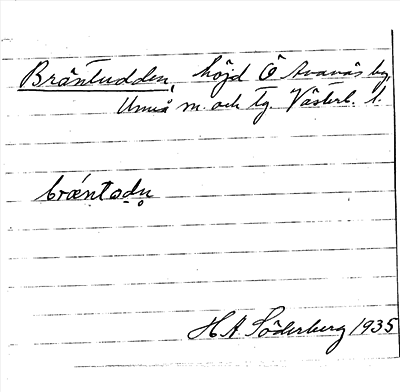 Bräntudden, höjd Ö Avanäs by,
Umeå m. och tg. Västerb. l.
bræntɷdn̥
H A Söderberg 1935